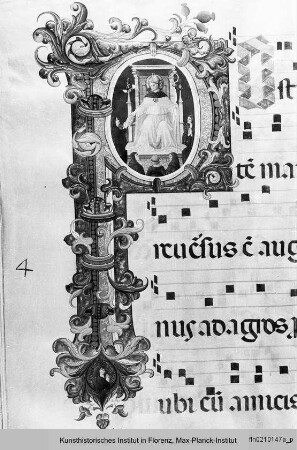 st
tē ma
rcuēsus ē aug
nus ad agros p
ubi cū amicis
4
Kunsthistorisches Institut in Florenz, Max-Planck-Institut
fln0210147a_p